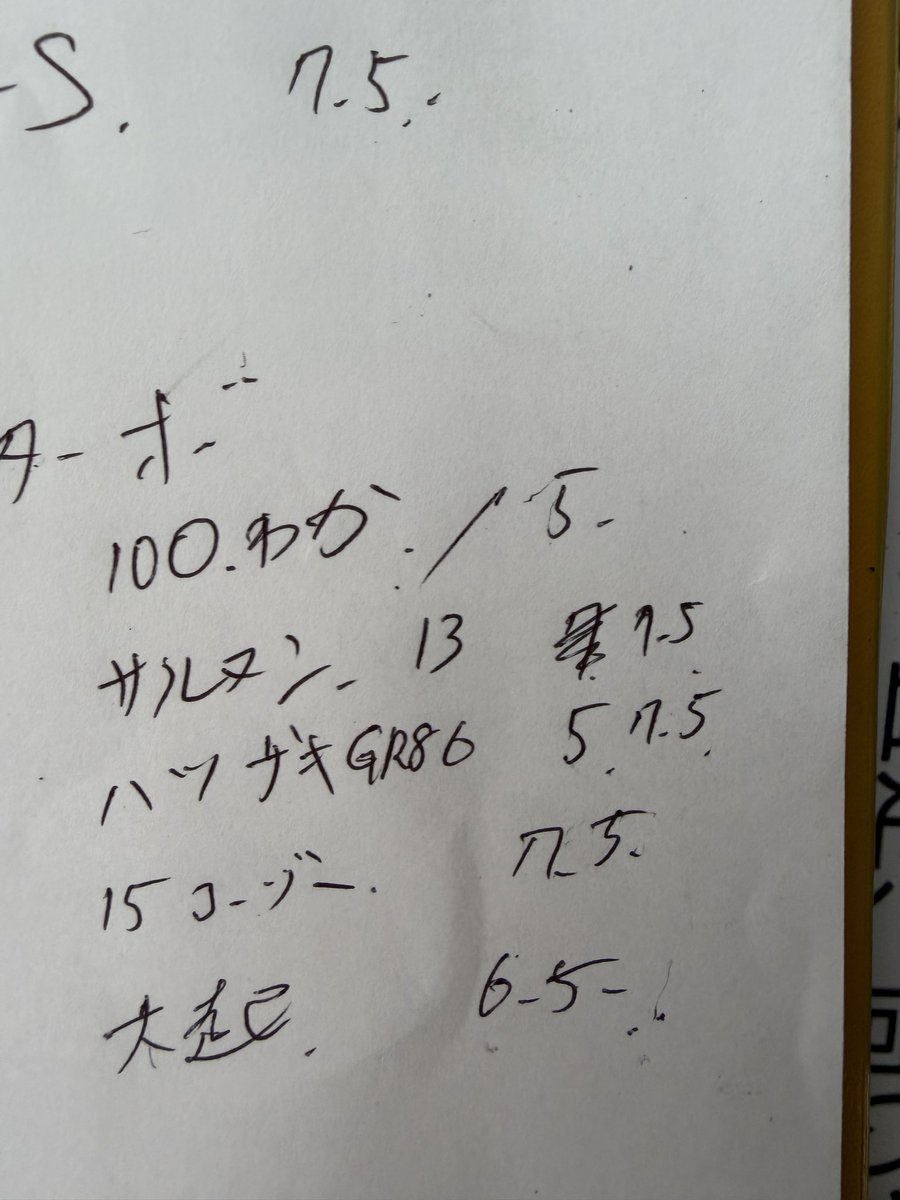 -S. 7.5.
ターボ
100.わか. / 5.
サルヌン. 13 7.5.
ハツザキGR86 5. 7.5.
15コージー. 7.5.
大起. 6.5